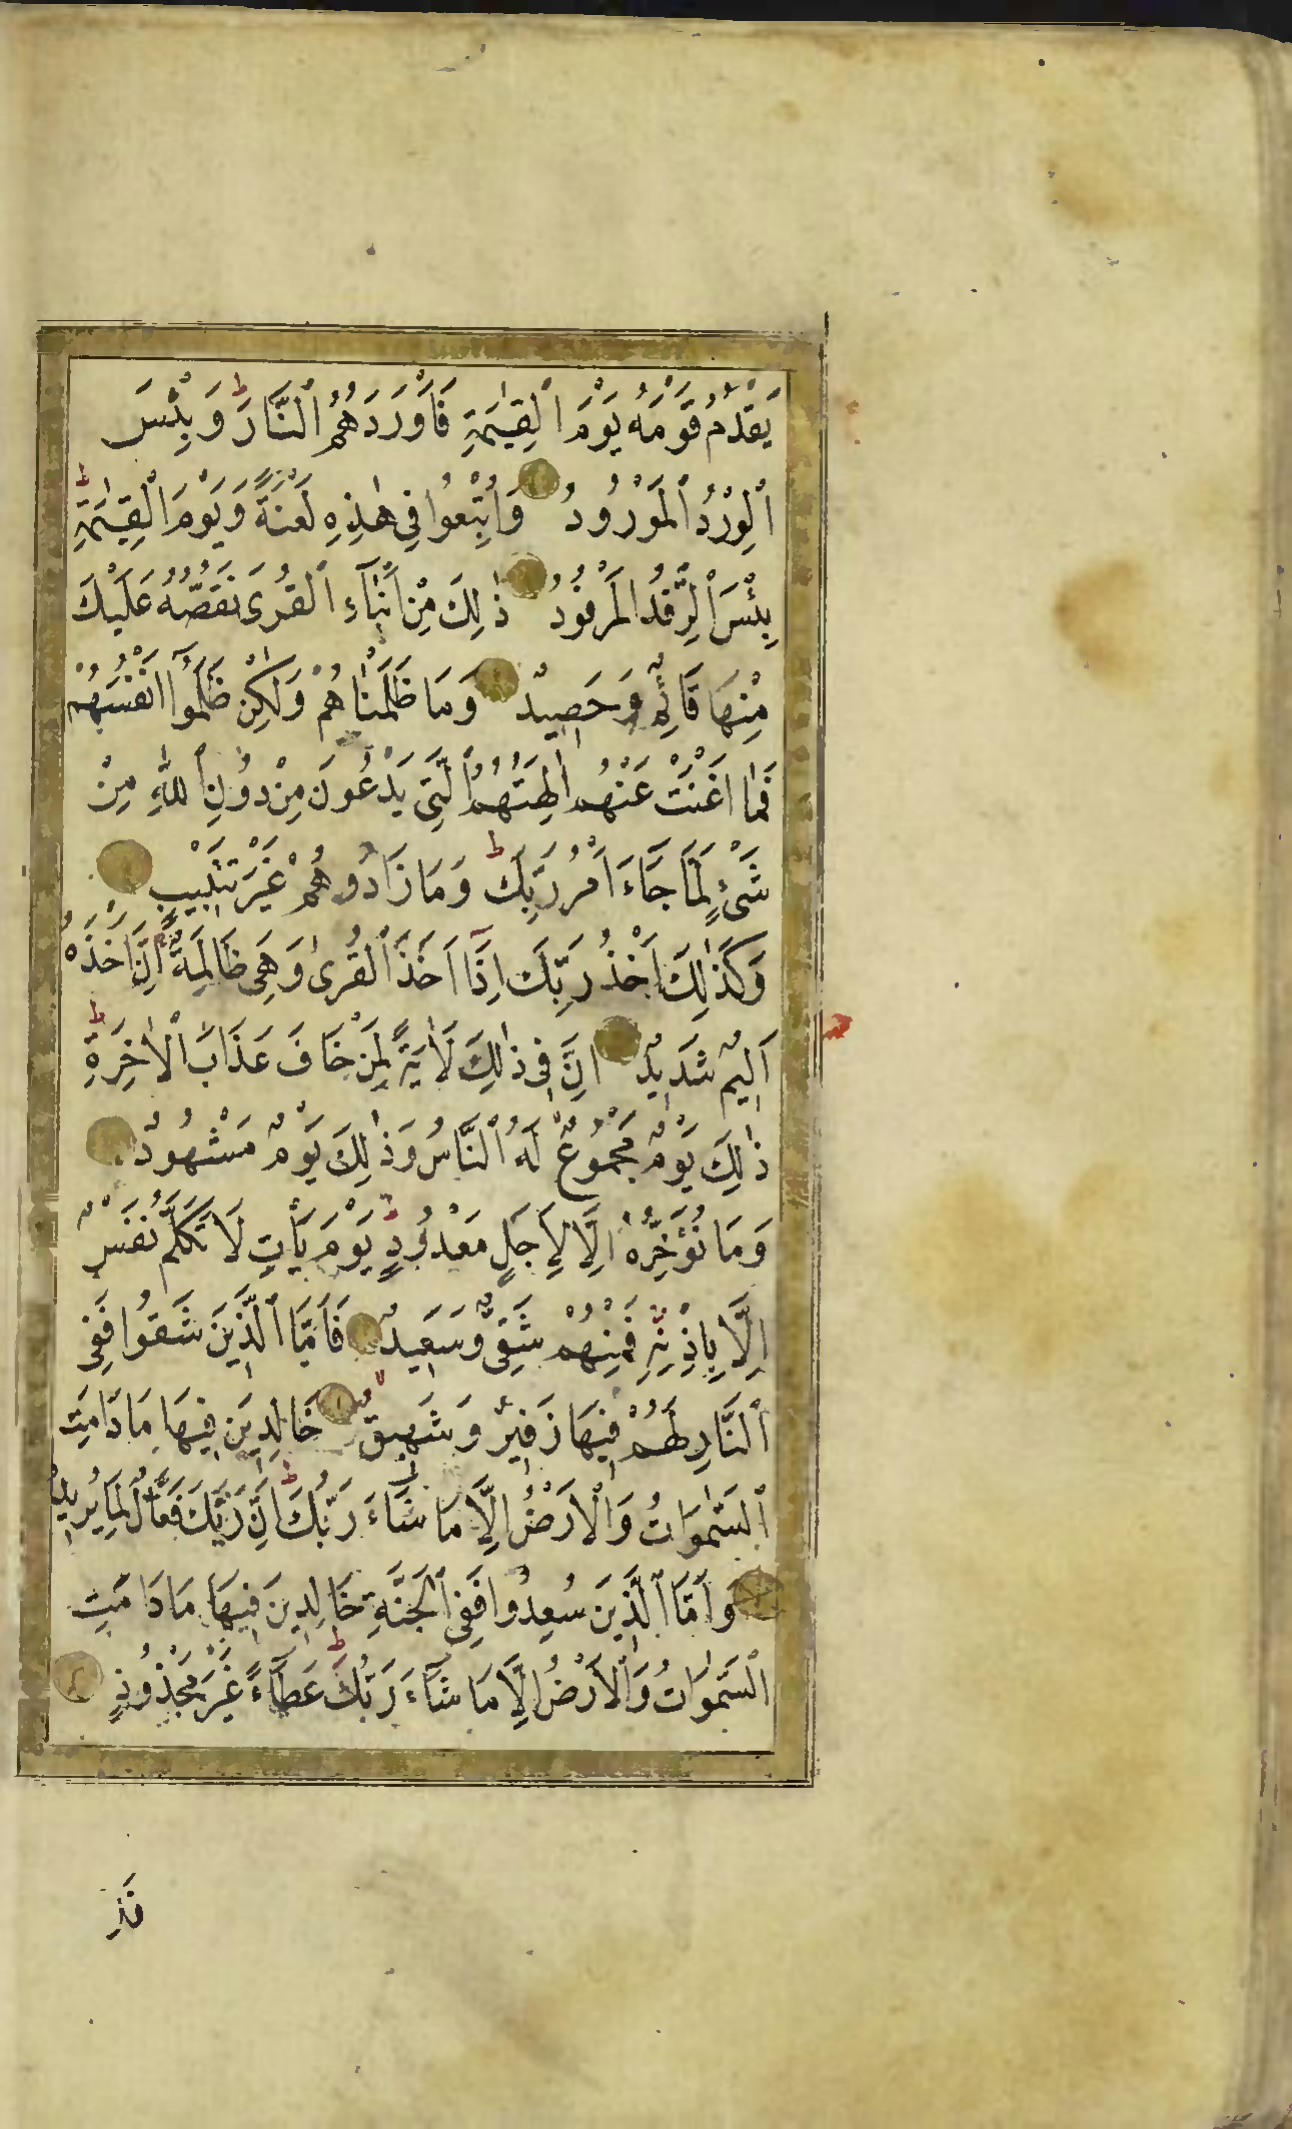 يَقْدُمُ قَوْمَهُ يَوْمَ ٱلْقِيٰمَةِ فَاَوْرَدَهُمُ ٱلنَّارَ ط وَبِئْسَ
ٱلْوِرْدُ ٱلْمَوْرُودُ وَاُتْبِعُوا فِى هٰذِهِ لَعْنَةً وَيَوْمَ ٱلْقِيٰمَةِ ط
بِئْسَ ٱلرِّفْدُ ٱلْمَرْفُودُ ذٰلِكَ مِنْ اَنْبَآءِ ٱلْقُرٰى نَقُصُّهُ عَلَيْكَ
مِنْهَا قَآئِمٌ وَحَصِيدٌ وَمَا ظَلَمْنَاهُمْ وَلٰكِنْ ظَلَمُوٓا اَنْفُسَهُمْ
فَمَا اَغْنَتْ عَنْهُمْ اٰلِهَتُهُمُ ٱلَّتِى يَدْعُونَ مِنْ دُونِ ٱللّٰهِ مِنْ
شَىْءٍ لَمَّا جَآءَ اَمْرُ رَبِّكَ ط وَمَا زَادُوهُمْ غَيْرَ تَتْبِيبٍ
وَكَذٰلِكَ اَخْذُ رَبِّكَ اِذَآ اَخَذَ ٱلْقُرٰى وَهِىَ ظَالِمَةٌ اِنَّ اَخْذَهُ
اَلِيمٌ شَدِيدٌ اِنَّ فِى ذٰلِكَ لَاٰيَةً لِمَنْ خَافَ عَذَابَ ٱلْاٰخِرَةِ ط
ذٰلِكَ يَوْمٌ مَجْمُوعٌ لَهُ ٱلنَّاسُ وَذٰلِكَ يَوْمٌ مَشْهُودٌ
وَمَا نُؤَخِّرُهُٓ اِلَّا لِاَجَلٍ مَعْدُودٍ ط يَوْمَ يَأْتِ لَا تَكَلَّمُ نَفْسٌ
اِلَّا بِاِذْنِهِ فَمِنْهُمْ شَقِىٌّ وَسَعِيدٌ فَاَمَّا ٱلَّذِينَ شَقُوا فَفِى
ٱلنَّارِ لَهُمْ فِيهَا زَفِيرٌ وَشَهِيقٌ خَالِدِينَ فِيهَا مَا دَامَتِ
ٱلسَّمٰوَاتُ وَٱلْاَرْضُ اِلَّا مَا شَآءَ رَبُّكَ ط اِنَّ رَبَّكَ فَعَّالٌ لِمَا يُرِيدُ
وَاَمَّا ٱلَّذِينَ سُعِدُوا فَفِى ٱلْجَنَّةِ خَالِدِينَ فِيهَا مَا دَامَتِ
ٱلسَّمٰوَاتُ وَٱلْاَرْضُ اِلَّا مَا شَآءَ رَبُّكَ ط عَطَآءً غَيْرَ مَجْذُوذٍ